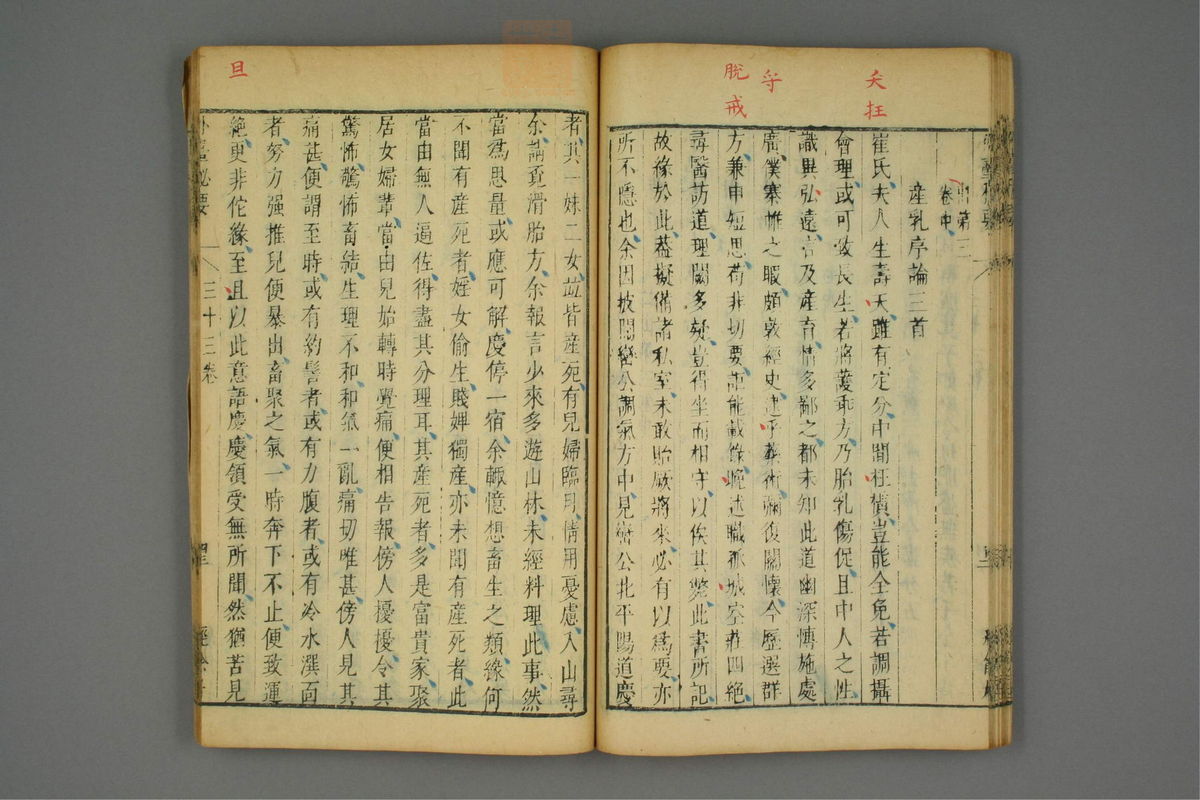 夭
枉
守
脫
戒
出第三
卷中
產乳序論三首
崔氏夫人生壽夭雖有定分中間枉橫豈能全免若調攝
會理或可致長生若將護乖方乃胎乳傷促且中人之性
識異弘遠言及產育情多鄙之都未知此道幽深博施處
廣僕寨帷之暇頗敦經史逮乎藝術彌復關懷今歷選群
方兼申短思苟非切要詎能載錄晚述職孤城空莊四絕
尋醫訪道理闕多疑豈得坐而相守以俟其斃此書所記
故緣於此葢擬備諸私室未敢貽厥將來必有以爲要亦
所不隱也余因披閱巒公調氣方中見巒公北平陽道慶
旦
者其一妹二女竝皆產死有兒婦臨月情用憂慮入山尋
余請覓滑胎方余報言少來多遊山林未經料理此事然
當爲思量或應可解慶停一宿余輙憶想畜生之類緣何
不聞有產死者婬女偷生賤婢獨產亦未聞有產死者此
當由無人逼佐得盡其分理耳其產死者多是富貴家聚
居女婦軰當由兒始轉時覺痛便相告報傍人擾擾令其
驚怖驚怖畜結生理不和和氣一亂痛切唯甚傍人見其
痛甚便謂至時或有約髻者或有力腹者或有冷水潠面
者努力强推兒便暴出畜聚之氣一時奔下不止便致運
絕更非佗緣至且以此意語慶慶領受無所聞然猶苦見
外臺秘要
三十三卷